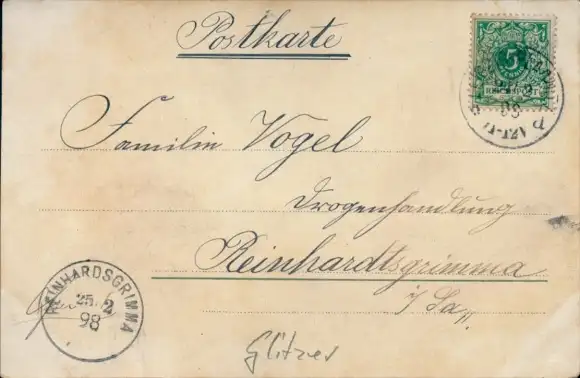 Postkarte
5
REICHSPOST
98
Familie Vogel
Drogenhandlung
Reinhardtsgrimma
i/Sa.
REINHARDSGRIMMA
25. 2
98
Glitzer